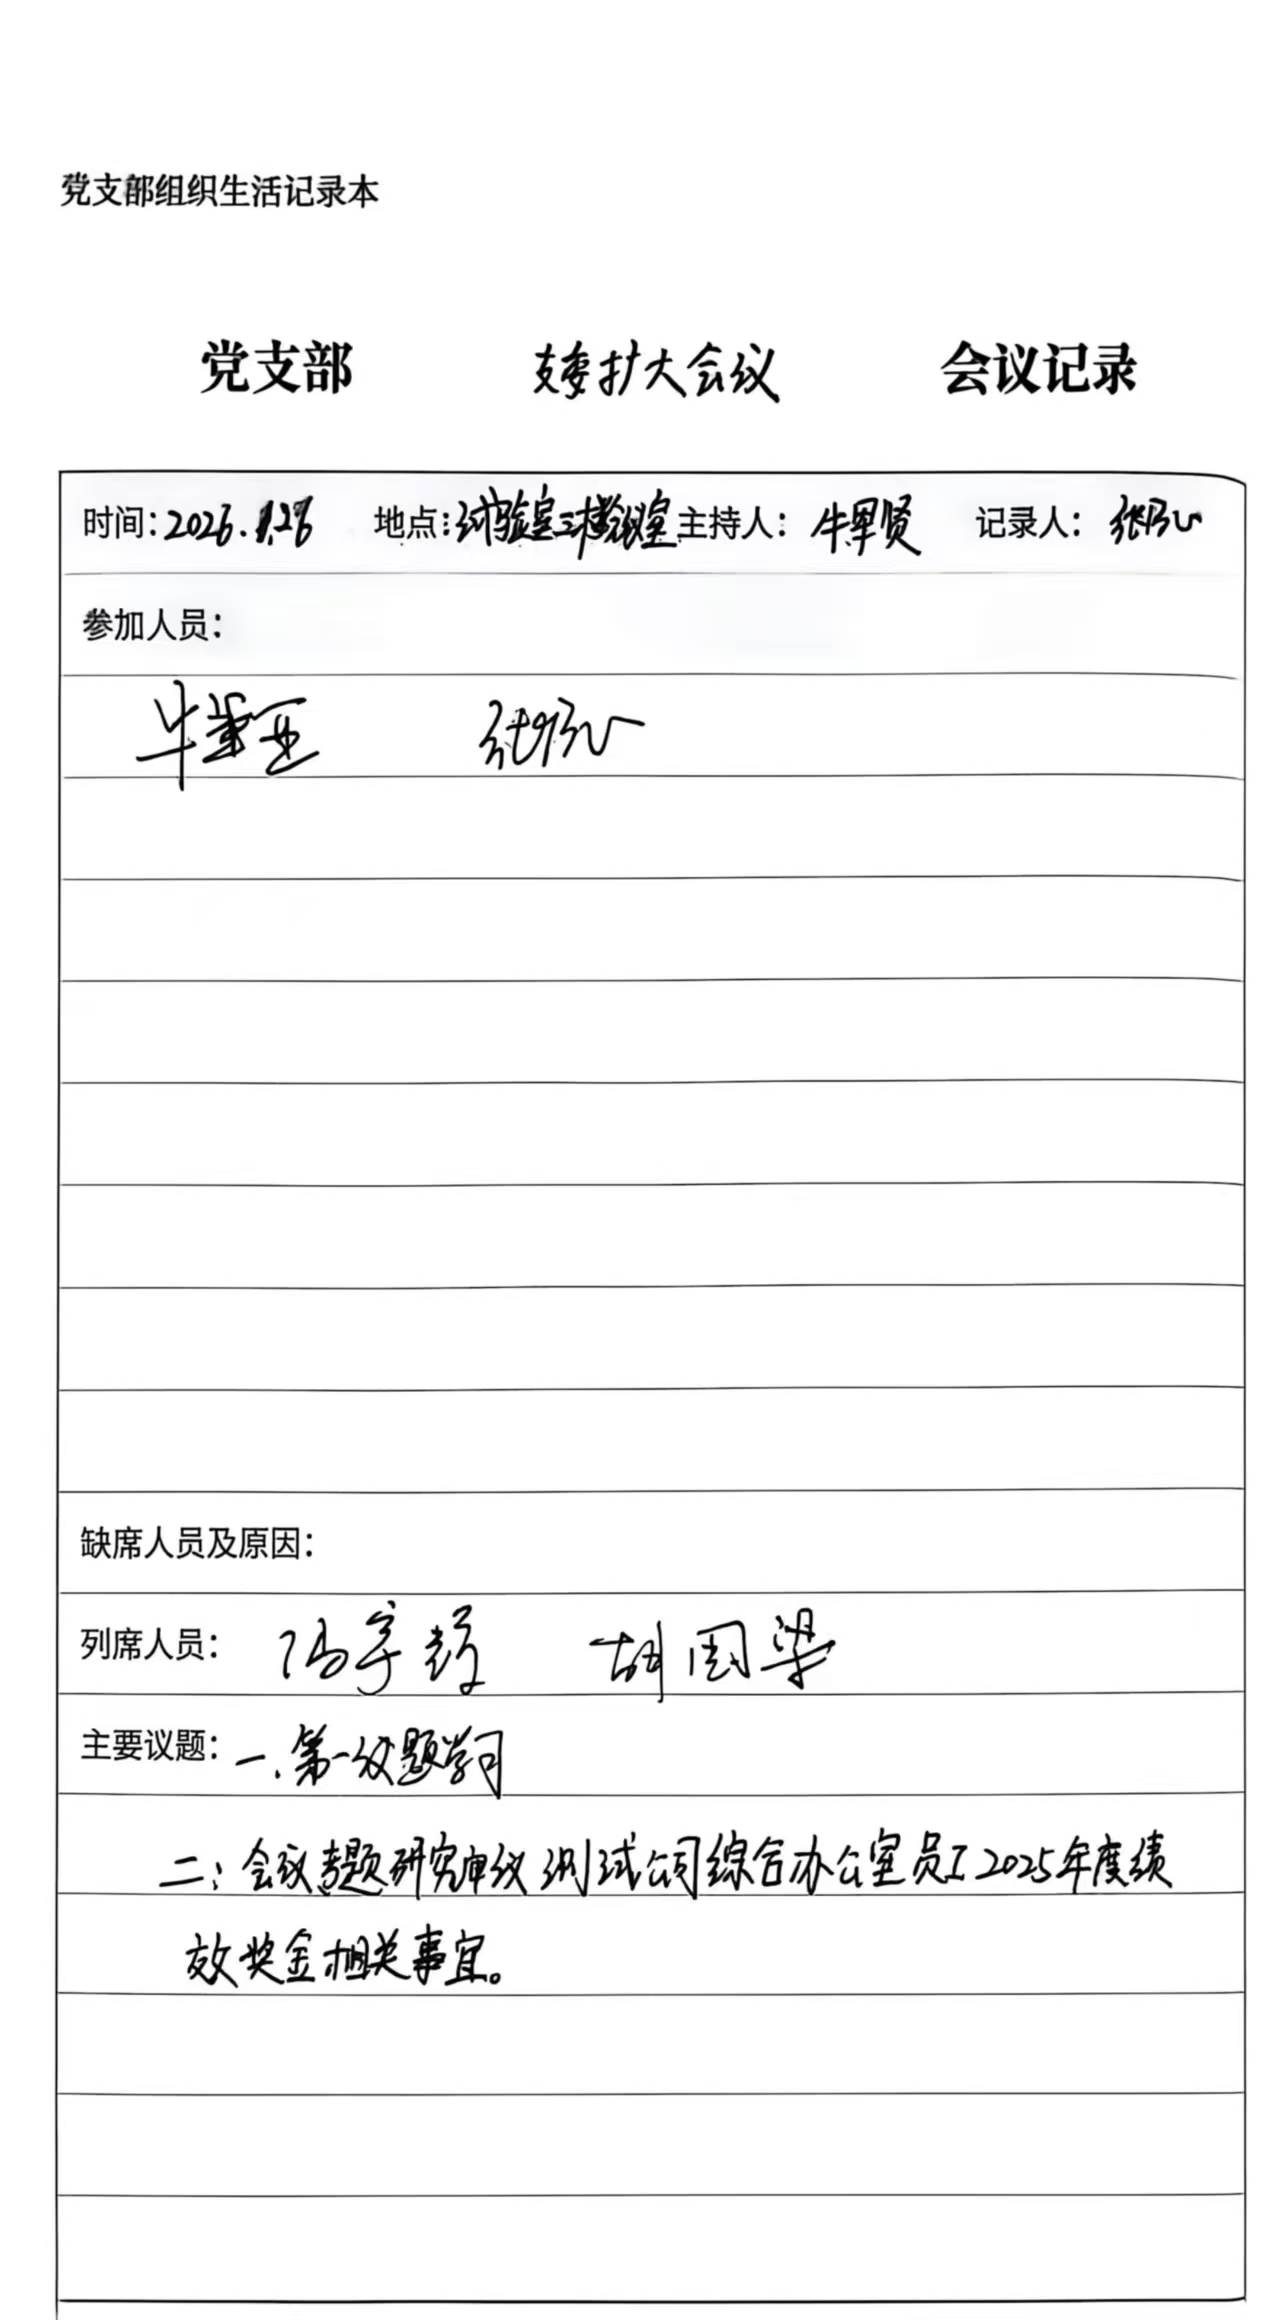 党支部组织生活记录本
党支部 支委扩大会议 会议记录
时间：2026.1.26 地点：试验室三楼会议室 主持人：牛 记录人：张
参加人员：
牛 张
缺席人员及原因：
列席人员：冯宇 胡国梁
主要议题：一、第一议题学习
二：会议专题研究审议测试公司综合办公室员工2025年度绩
效奖金相关事宜。